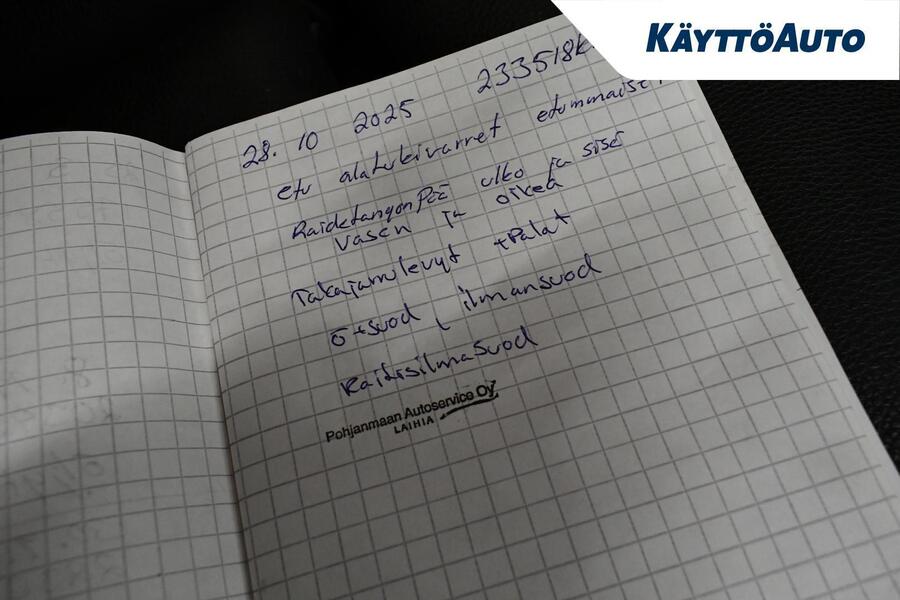 KÄYTTÖAUTO
28. 10 2025 233518k
etu alatukivarret etummaiset
Raidetangon Pää ulko ja sisä
vasen ja oikea
Takajarrulevyt + Palat
Ö+suod, ilmansuod
Raitisilmasuod
Pohjanmaan Autoservice Oy
LAIHIA